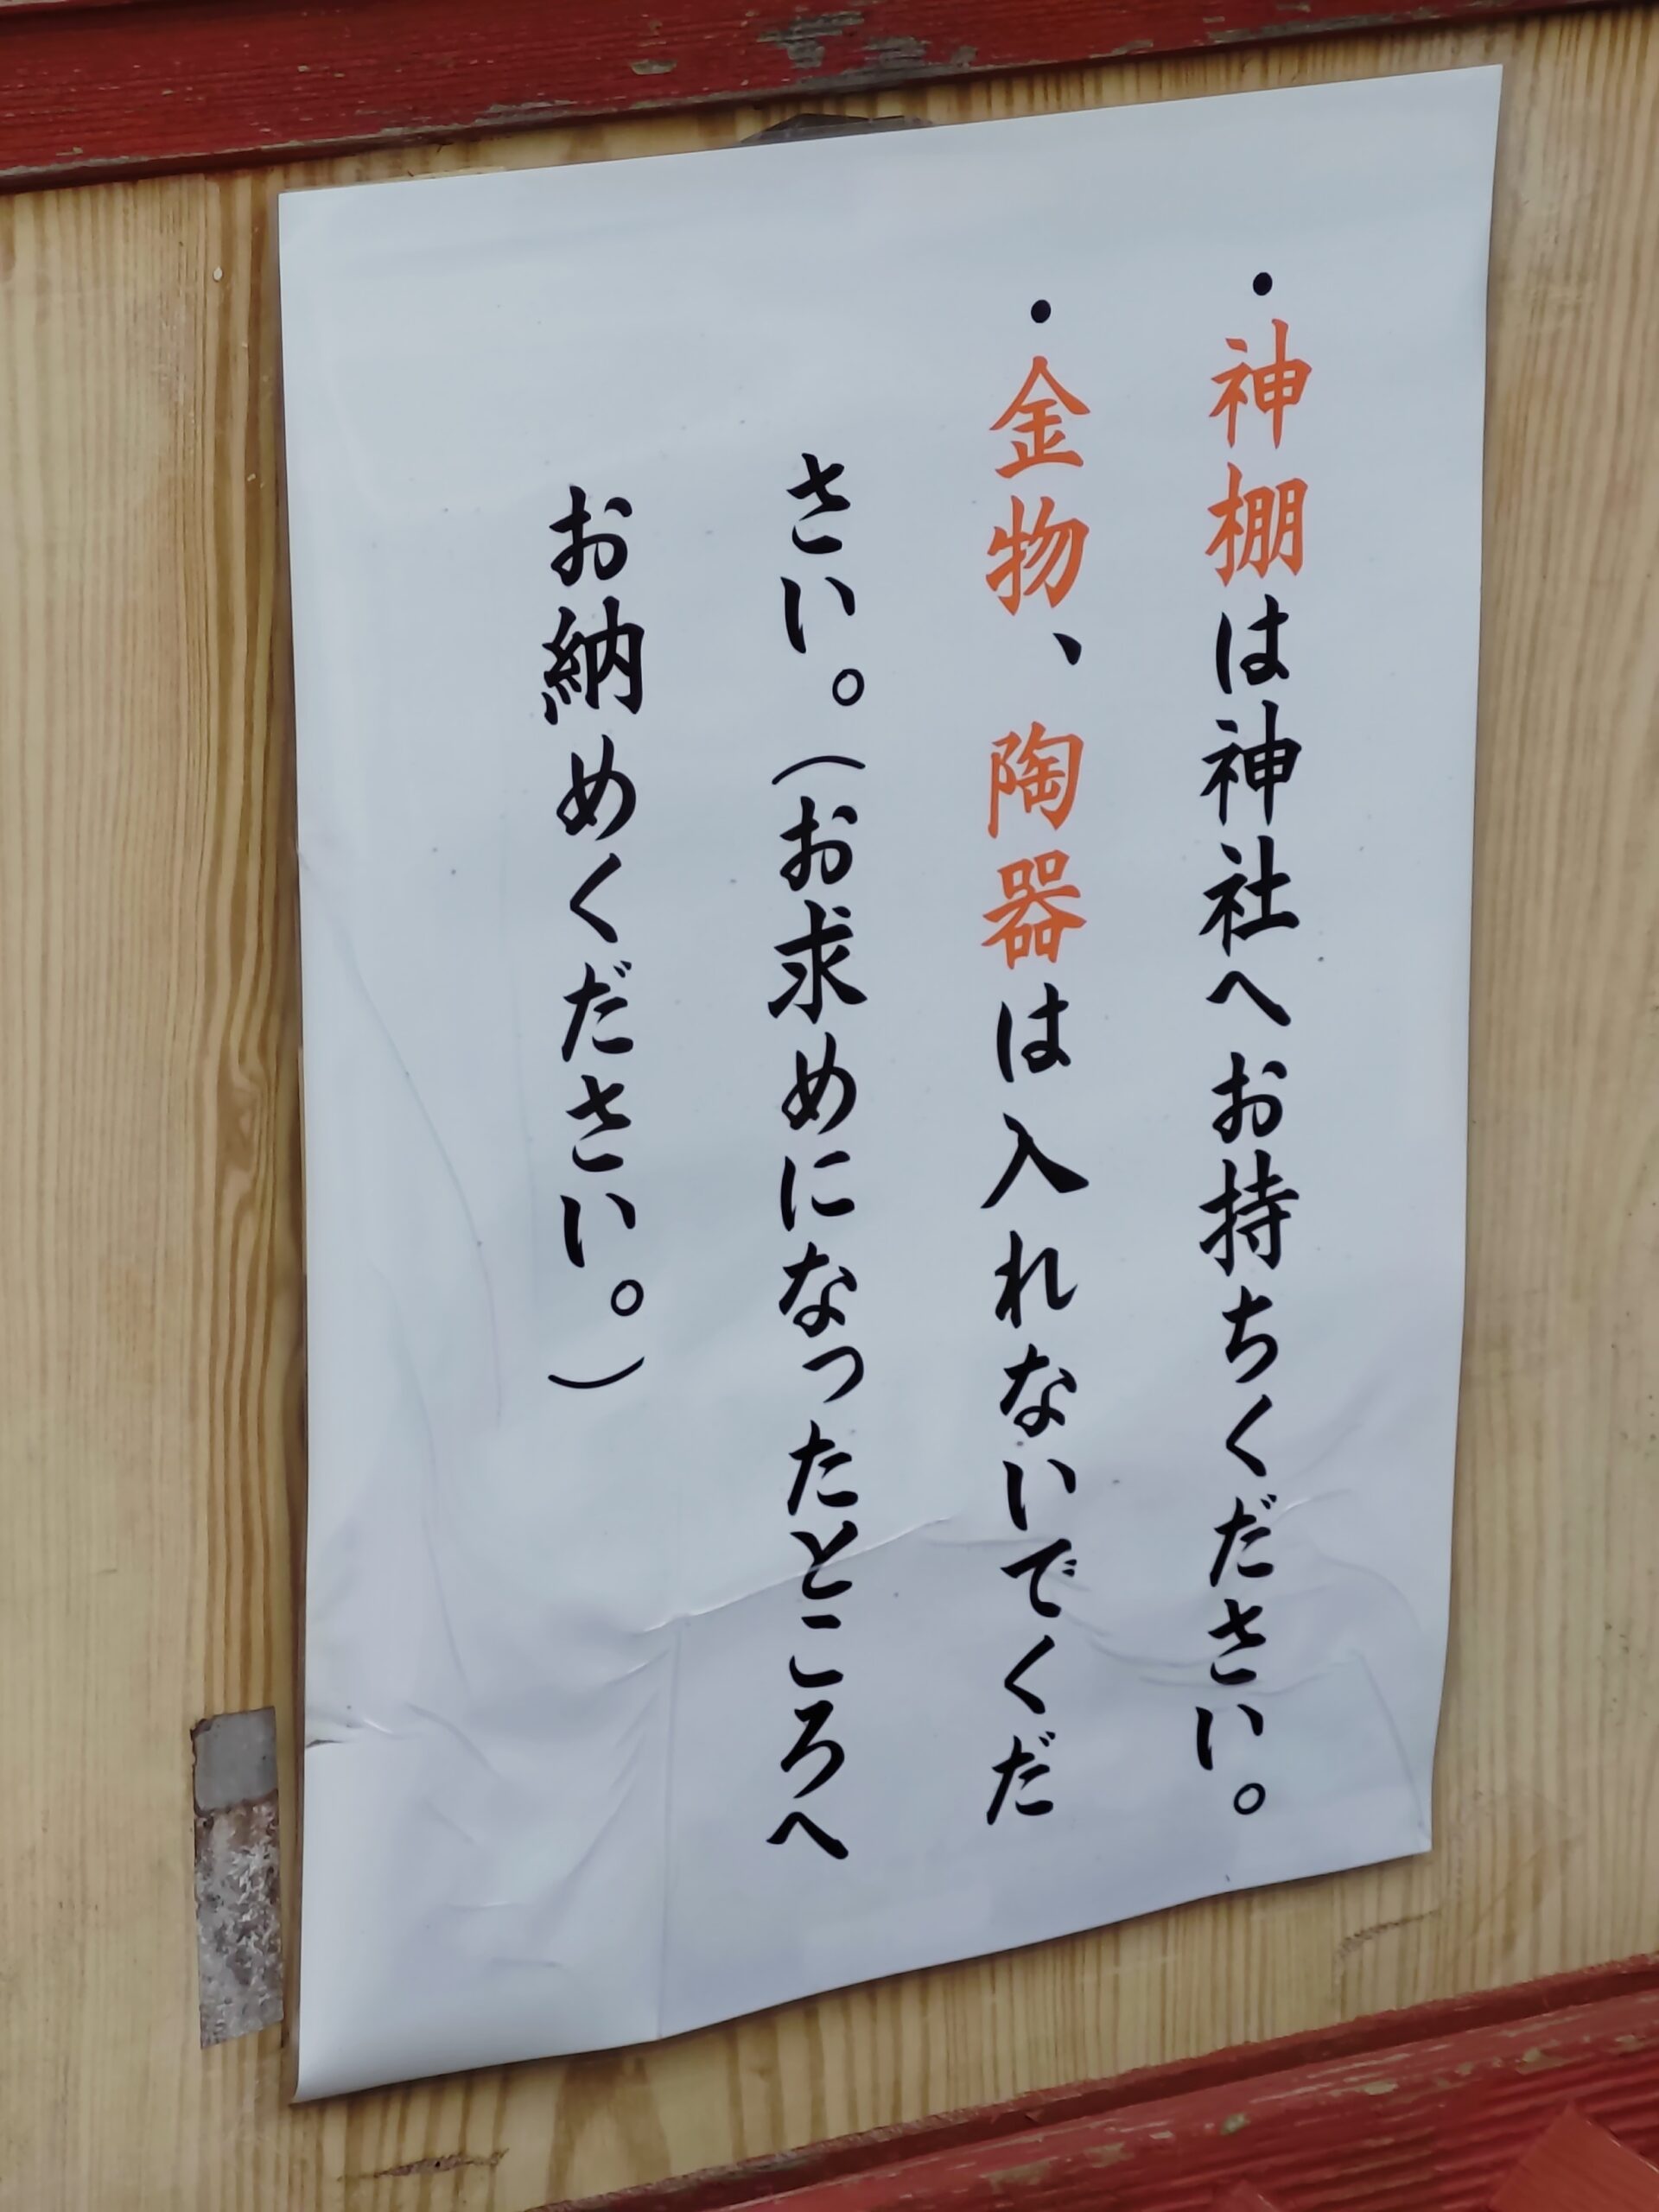 ・神棚は神社へお持ちください。
・金物、陶器は入れないでくだ
さい。（お求めになったところへ
お納めください。）